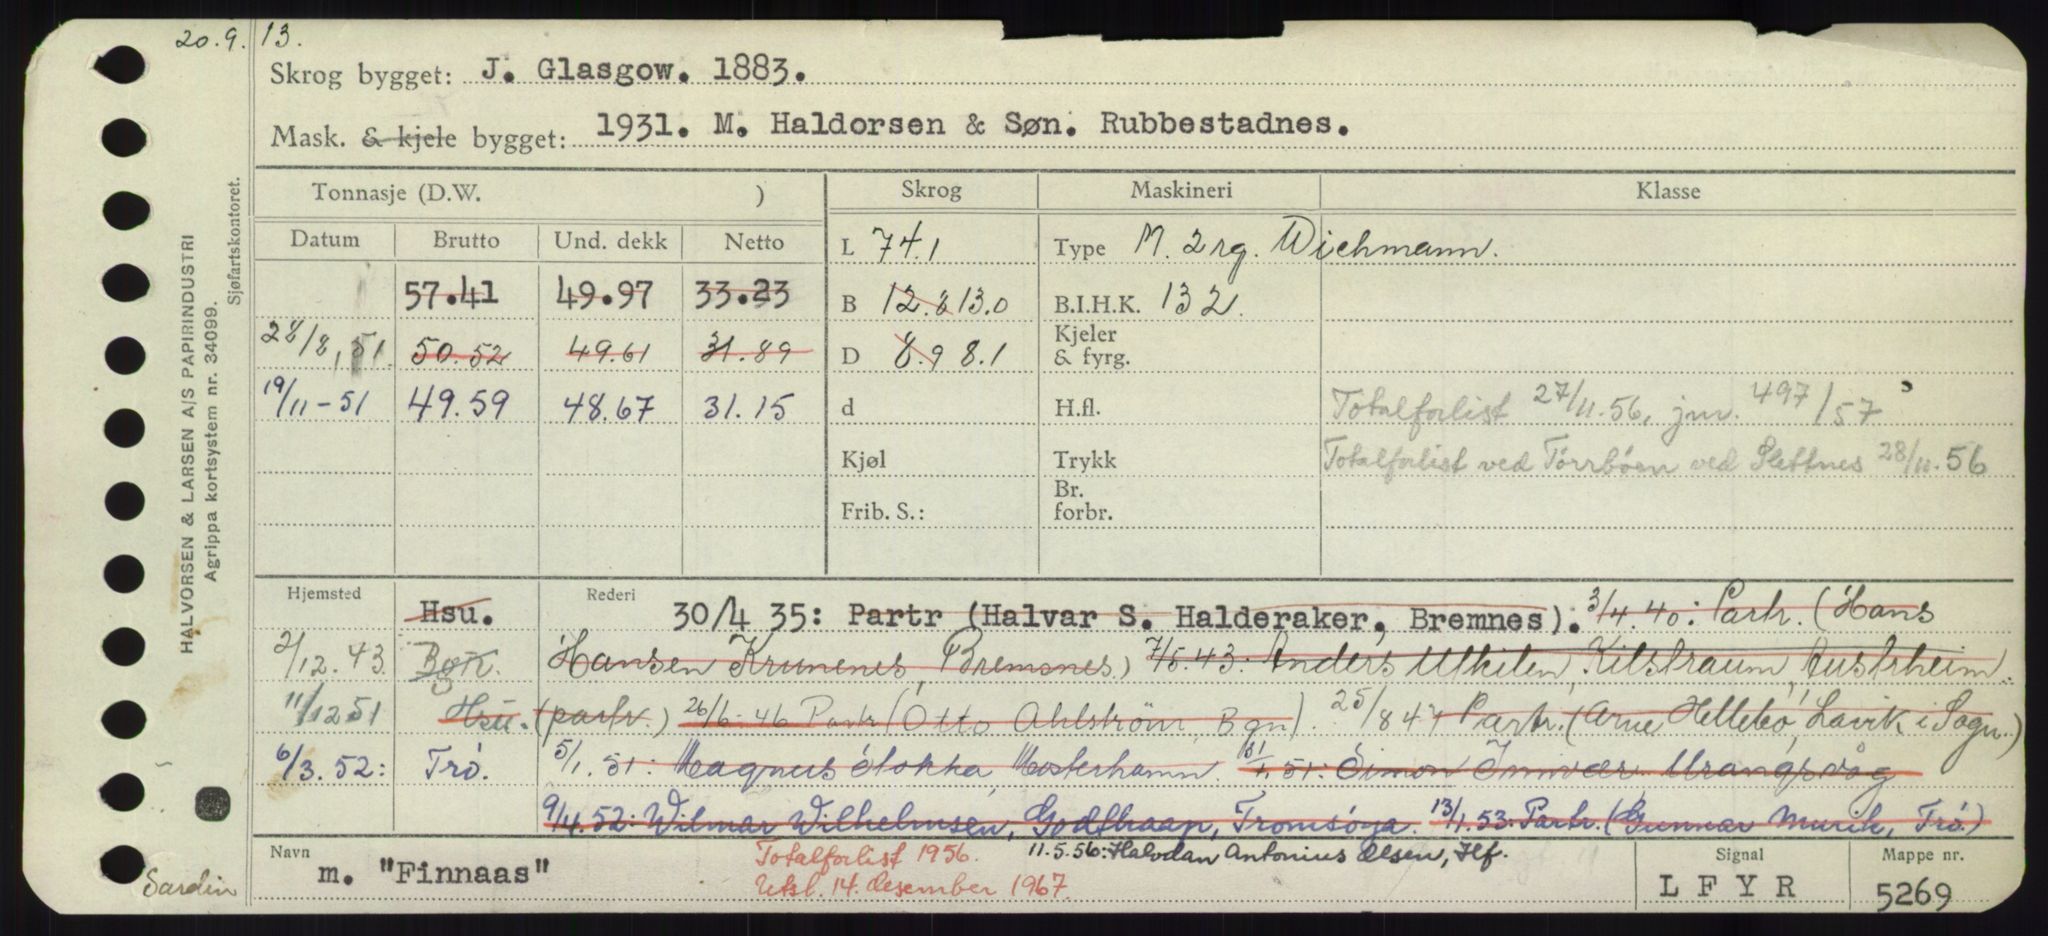 20.9.13.
Skrog bygget: J. Glasgow. 1883.
Mask. & kjele bygget: 1931. M. Haldorsen & Søn. Rubbestadnes.
HALVORSEN & LARSEN A/S PAPIRINDUSTRI
Agrippa kortsystem nr. 34099.
Sjøfartskontoret.
Tonnasje (D.W. ) Skrog Maskineri Klasse
Datum Brutto Und. dekk Netto L 74.1 Type M. 2 rg. Wichmann.
57.41 49.97 33.23 B 12.8 13.0 B.I.H.K. 132.
28/8, 51. 50.52 49.61 31.89 D 8.9 8.1 Kjeler & fyrg.
19/11-51 49.59 48.67 31.15 d H.fl. Totalforlist 27/11.56, jnr. 497/57
Kjøl Trykk Totalforlist ved Törrböen ved Slettnes 28/11.56
Frib. S.: Br. forbr.
Hjemsted Hsu. Rederi 30/4 35: Partr (Halvar S. Halderaker, Bremnes). 3/4.40: Partr. (Hans
2/12.43 Bgn. Hansen Krunenes, Bremsnes) 7/5.43: Anders Utkilen, Kilstraum, Austrheim
11/12 51 Hsu. (partr.) 26/6-46 Partr (Otto Ahlström, Bgn). 25/8 47 Partr. (Arne Hellebö, Lavik i Sogn.)
6/3.52: Trö. 5/1.51: Magnus Stokka, Mosterhamn. 31/1.51: Simon Innvær. Urangsvåg
9/4.52: Wilmar Wilhelmsen, Godthaap, Tromsöya. 13/1.53: Partr. (Gunnar Murik, Trö.)
Navn m. "Finnaas" Totalforlist 1956. 11.5.56: Halvdan Antonius Olsen, Hf. Signal L F Y R Mappe nr. 5269
Utsl. 14. desember 1967.
Sardin